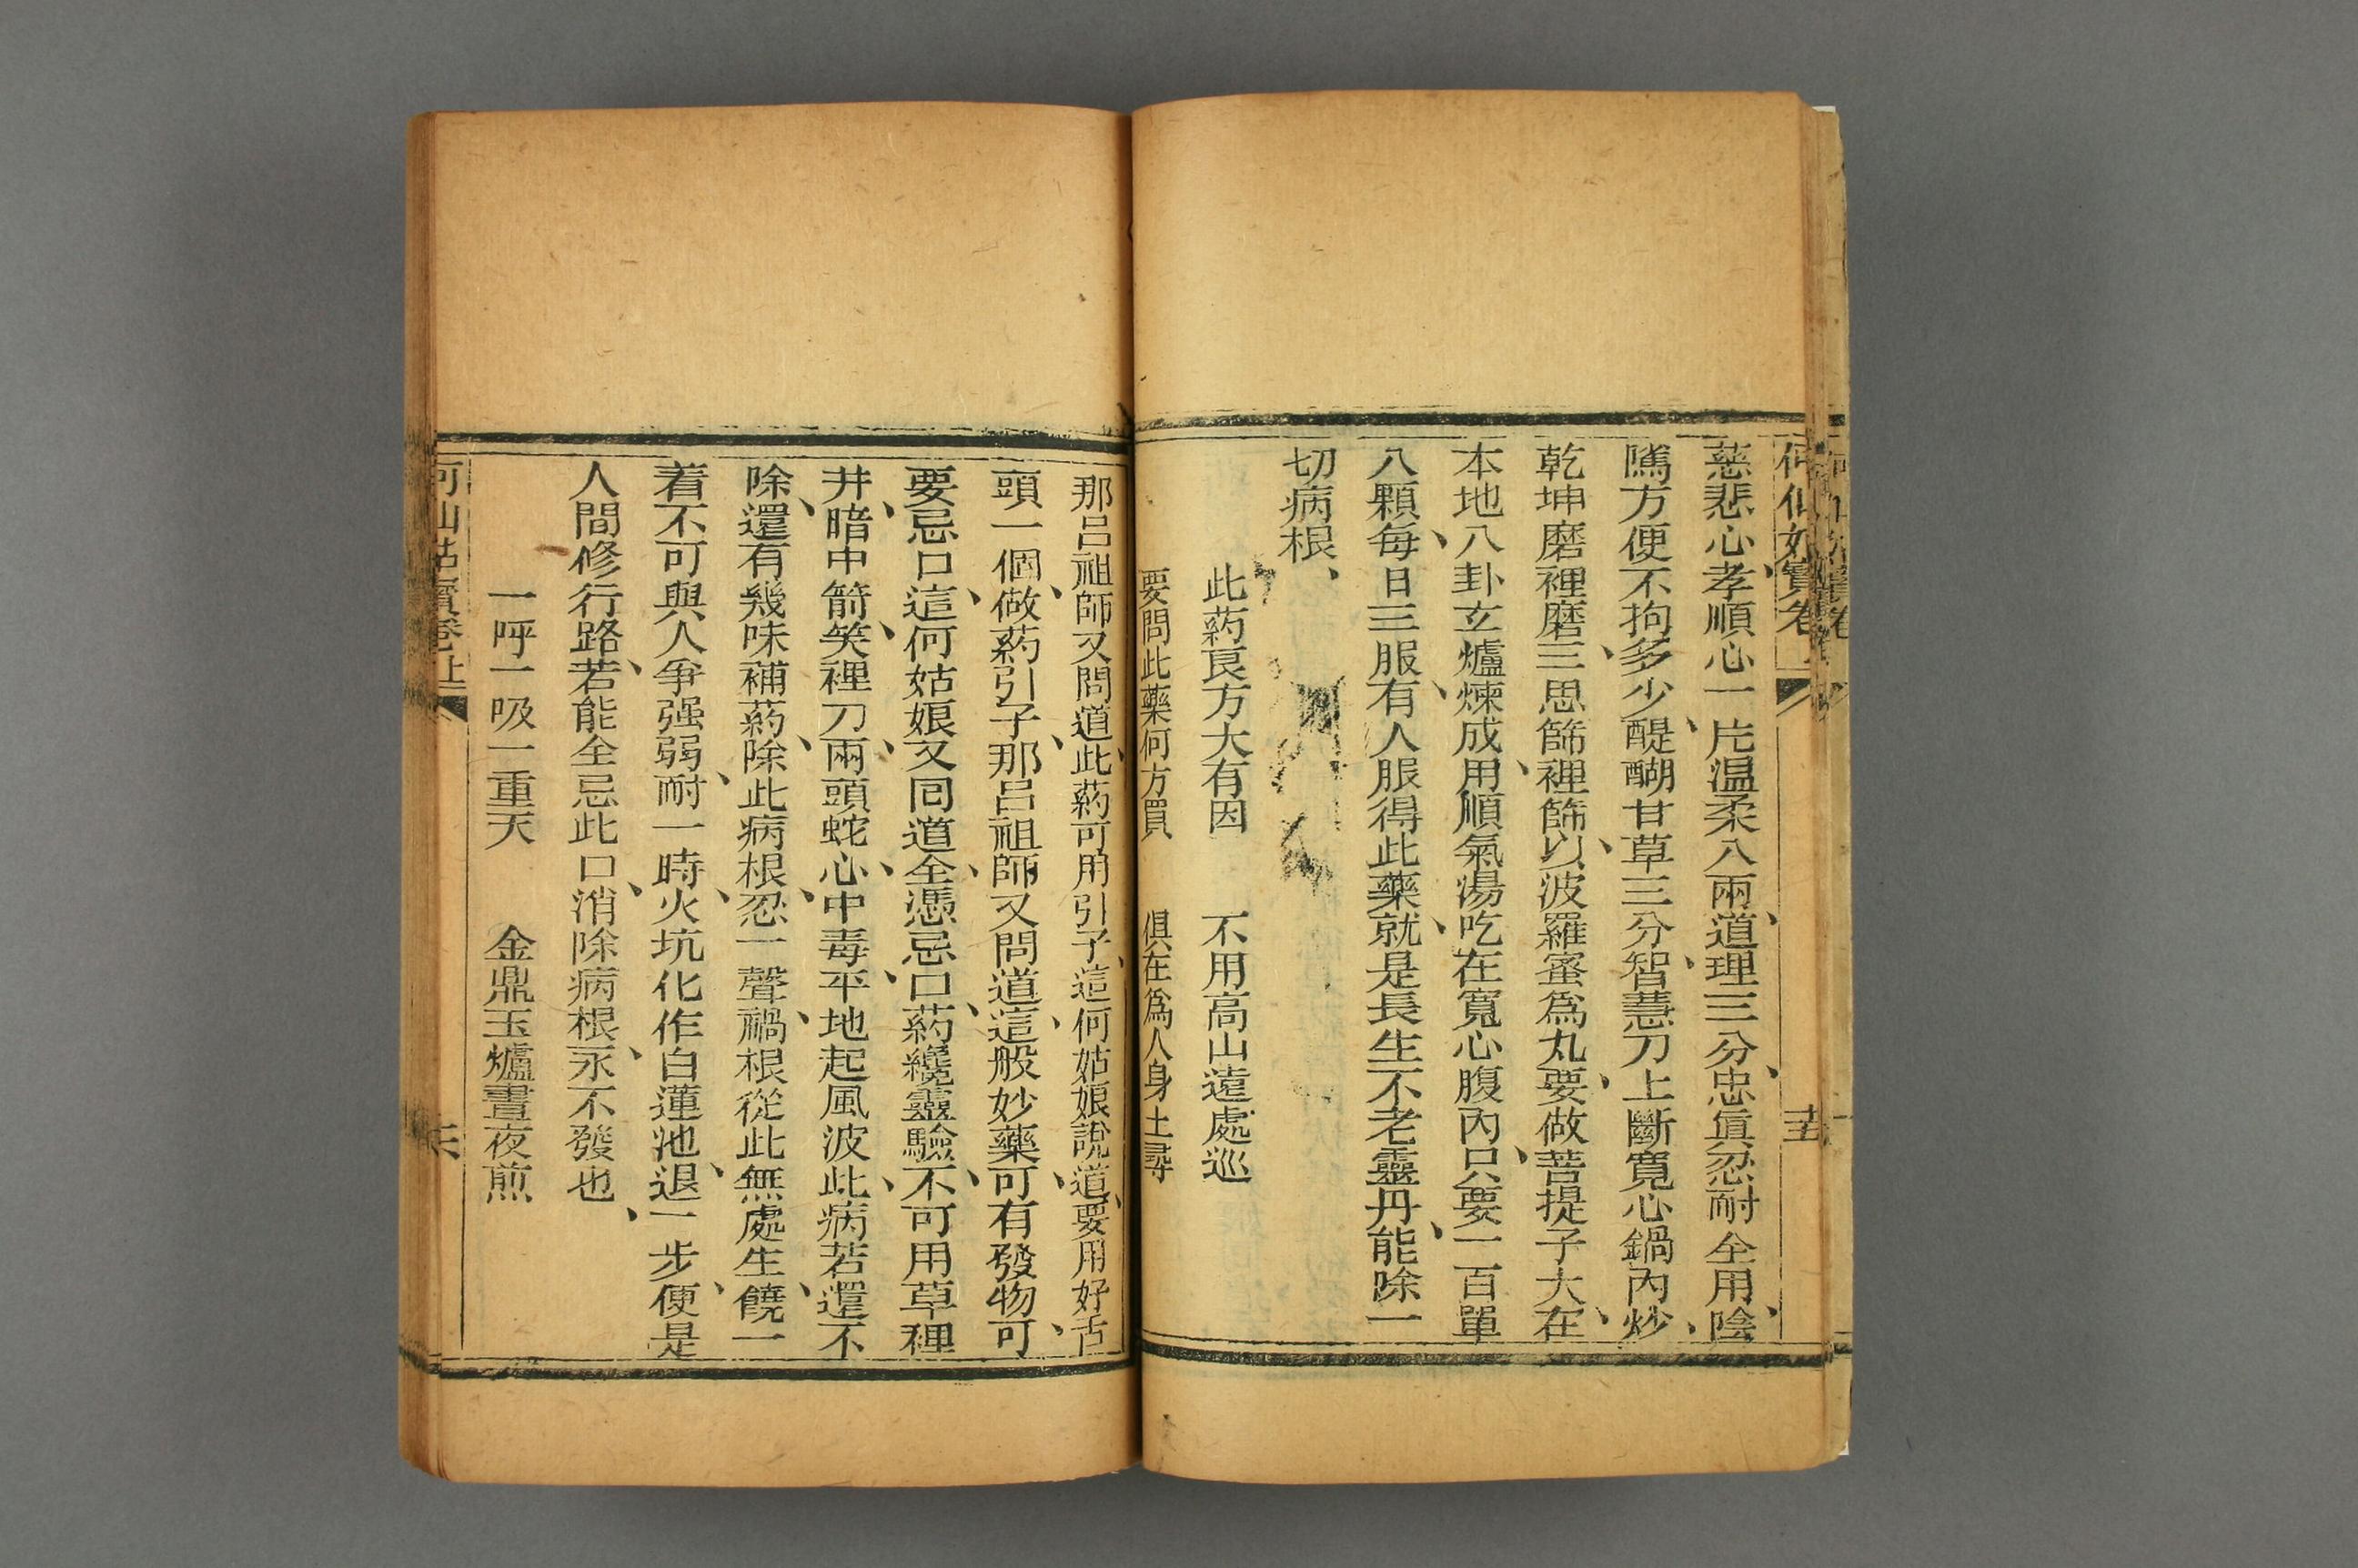 何仙姑寶卷
十五
慈悲心、孝順心一片溫柔八兩、道理三分、忠眞忍耐全用、陰
隲方便不拘多少、醍醐甘草三分、智慧刀上斷寬心鍋內炒、
乾坤磨裡磨、三思篩裡篩、以波羅蜜爲丸、要做菩提子大、在
本地八卦玄爐煉成、用順氣湯吃在寬心腹內、只要一百單
八顆、每日三服、有人服得此藥、就是長生不老靈丹、能除一
切病根、
此葯良方大有因　不用高山遠處巡
要問此藥何方買　俱在爲人身土尋
那呂祖師又問道、此葯可用引子、這何姑娘說道、要用好舌
頭一個、做葯引子、那呂祖師又問道這、般妙藥可、有發物可、
要忌口、這何姑娘又囘道、全憑忌口、葯纔靈驗、不可用草裡
井、暗中箭、笑裡刀、兩頭蛇、心中毒、平地起風波、此病若還不
除、還有幾味補葯、除此病根、忍一聲、禍根從此無處生、饒一
着不可與人爭强弱、耐一時、火坑化作白蓮池、退一步、便是
人間修行路、若能全忌此口、消除病根、永不發也、
一呼一吸一重天　金鼎玉爐晝夜煎
何仙姑寶卷上